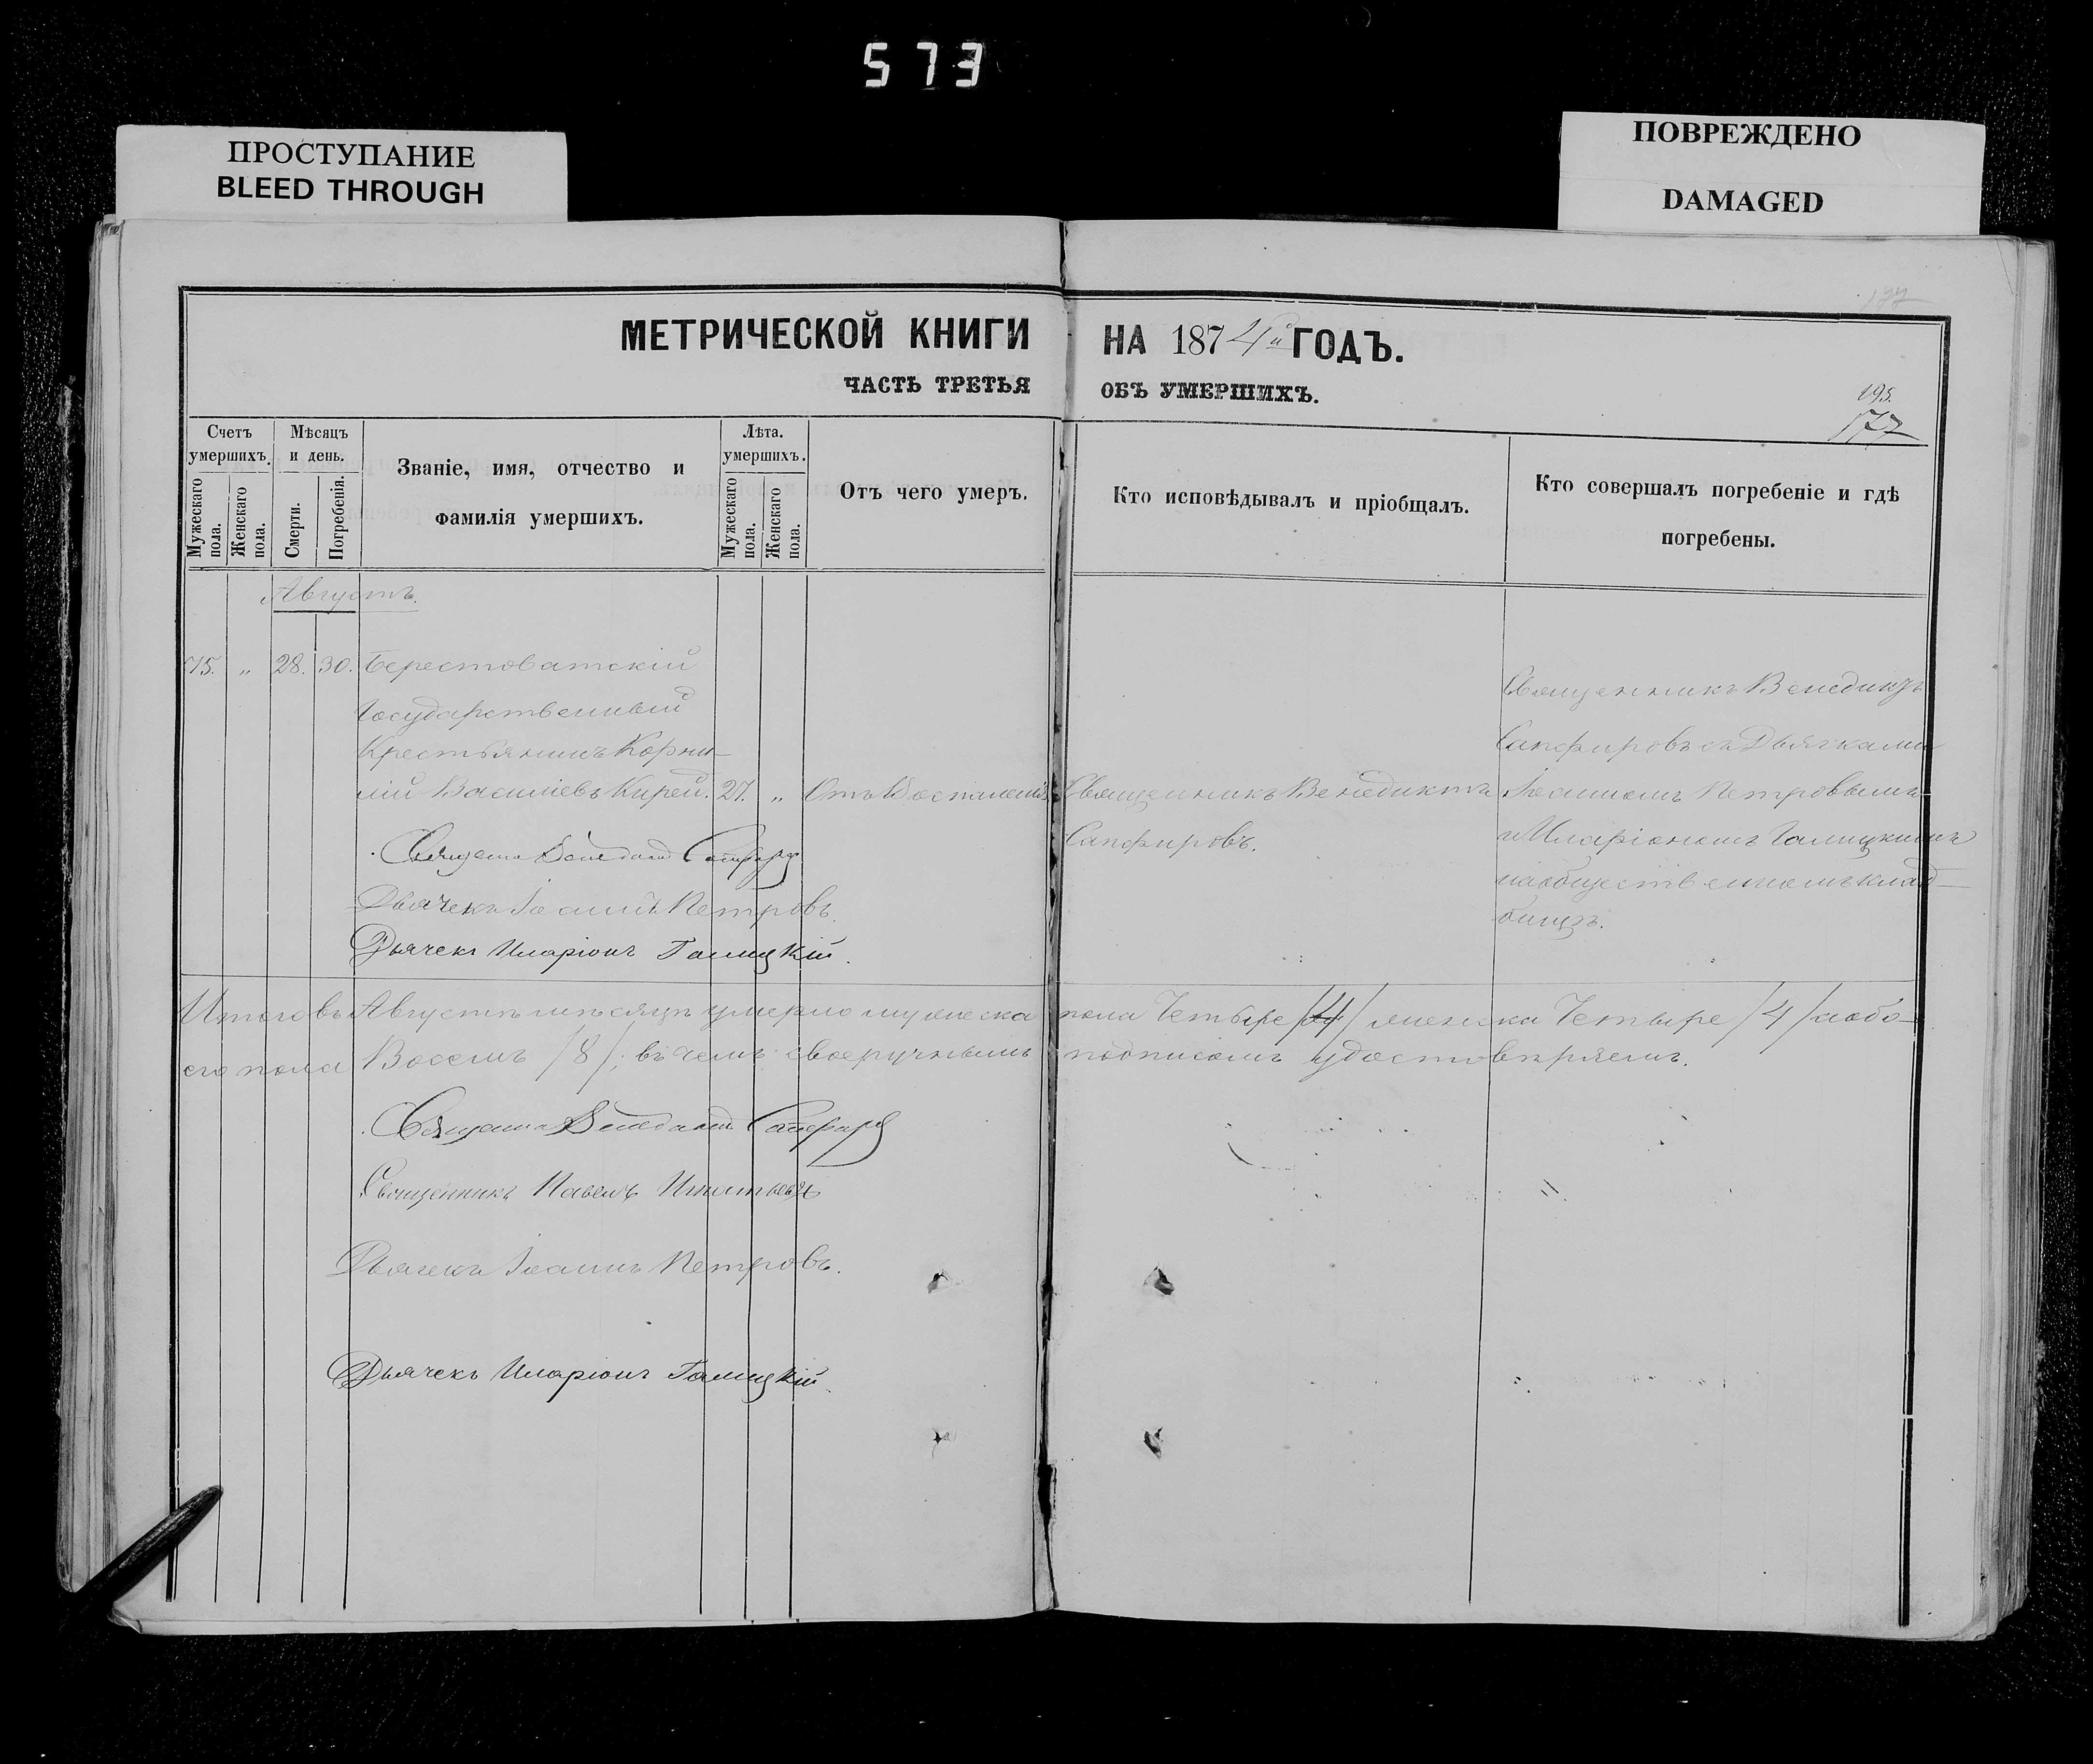 573
ПРОСТУПАНИЕ
BLEED THROUGH
ПОВРЕЖДЕНО
DAMAGED
177
МЕТРИЧЕСКОЙ КНИГИ НА 1874й ГОДЪ.
ЧАСТЬ ТРЕТЬЯ ОБЪ УМЕРШИХЪ.
195.
177
Счетъ умершихъ.
Мужескаго пола.
Женскаго пола.
Мѣсяцъ и день.
Смерти.
Погребенія.
Званіе, имя, отчество и
фамилія умершихъ.
Лѣта. умершихъ.
Мужескаго пола.
Женскаго пола.
Отъ чего умеръ.
Кто исповѣдывалъ и пріобщалъ.
Кто совершалъ погребеніе и гдѣ
погребены.
Августъ.
75. „ 28. 30. Берестоватскій
Государственный
Крестьянинъ Корни-
лій Василіевъ Кирей. 27. „ Отъ Воспаленія
Священникъ Венедиктъ
Сапфировъ.
Священникъ Венедиктъ
Сапфировъ съ Дьячками
Іоанномъ Петровымъ
и Иларіономъ Галицкимъ
на общественномъ клад-
бищѣ.
Священникъ Венедиктъ Сапфировъ
Дьячекъ Іоаннъ Петровъ.
Дьячекъ Иларіонъ Галицкій.
Итого въ Августѣ мѣсяцѣ умерло мужеска пола Четыре /4/ женска Четыре /4/ а обо-
его пола Восемь /8/; въ чемъ своеручнымъ подписомъ удостовѣряемъ.
Священникъ Венедиктъ Сапфировъ
Священникъ Павелъ
Дьячекъ Іоаннъ Петровъ.
Дьячекъ Иларіонъ Галицкій.